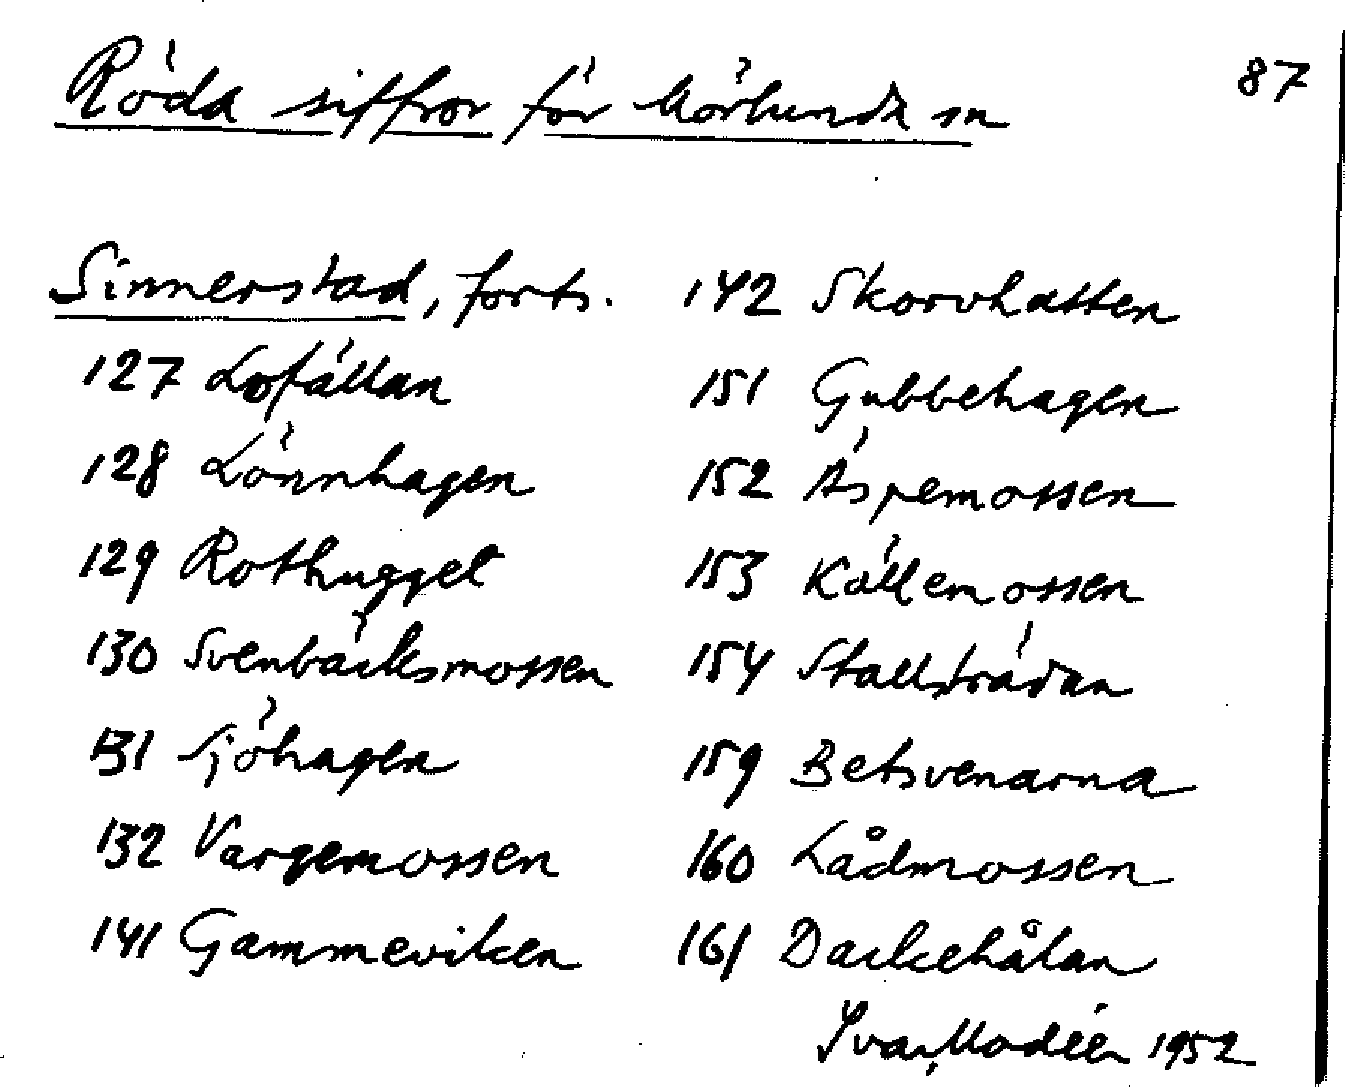 Röda siffror för Mörlunda sn
87
Sinnerstad, forts.
127 Lofällan
128 Lönnhagen
129 Rothugget
130 Svenbäcksmossen
131 Sjöhagen
132 Vargemossen
141 Gammeviken
142 Skorvhatten
151 Gubbehagen
152 Äspemossen
153 Källemossen
154 Stallsträdan
159 Betsvenarna
160 Lådmossen
161 Dackehålan
Ivar Modéer 1952